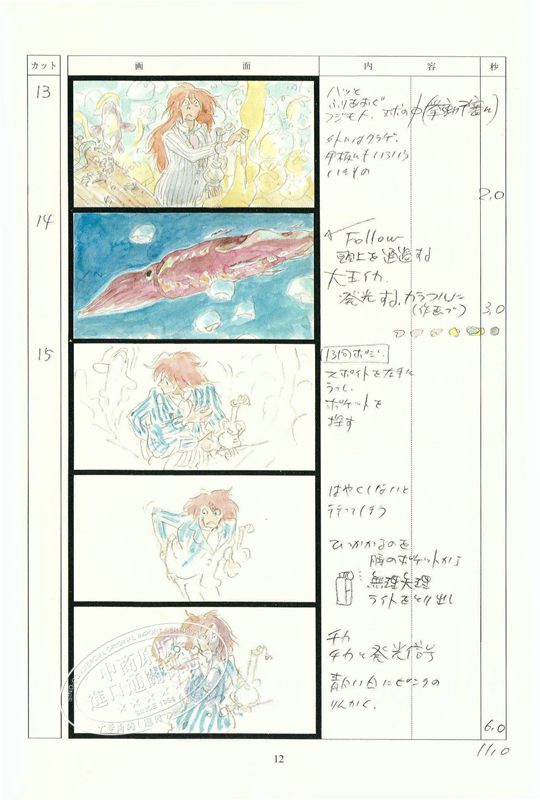 カット 画面 内容 秒
13
ハッと
ふりあおぐ
フジモト。
外にはクラゲ。
甲板にもいろいろ
いきもの
2.0
14
Follow
頭上を通過する
大王イカ
発光する。カラフルに
(作画で)
3.0
15
スポイトを左手に
うつし、
ポケットを
探す
はやくしないと
行ってしまう
ひっかかるのを
胸のポケットから
無理矢理
ライトをとり出し
チカ
チカと発光信号
青白い白にピンクの
りんかく。
6.0
11.0
12